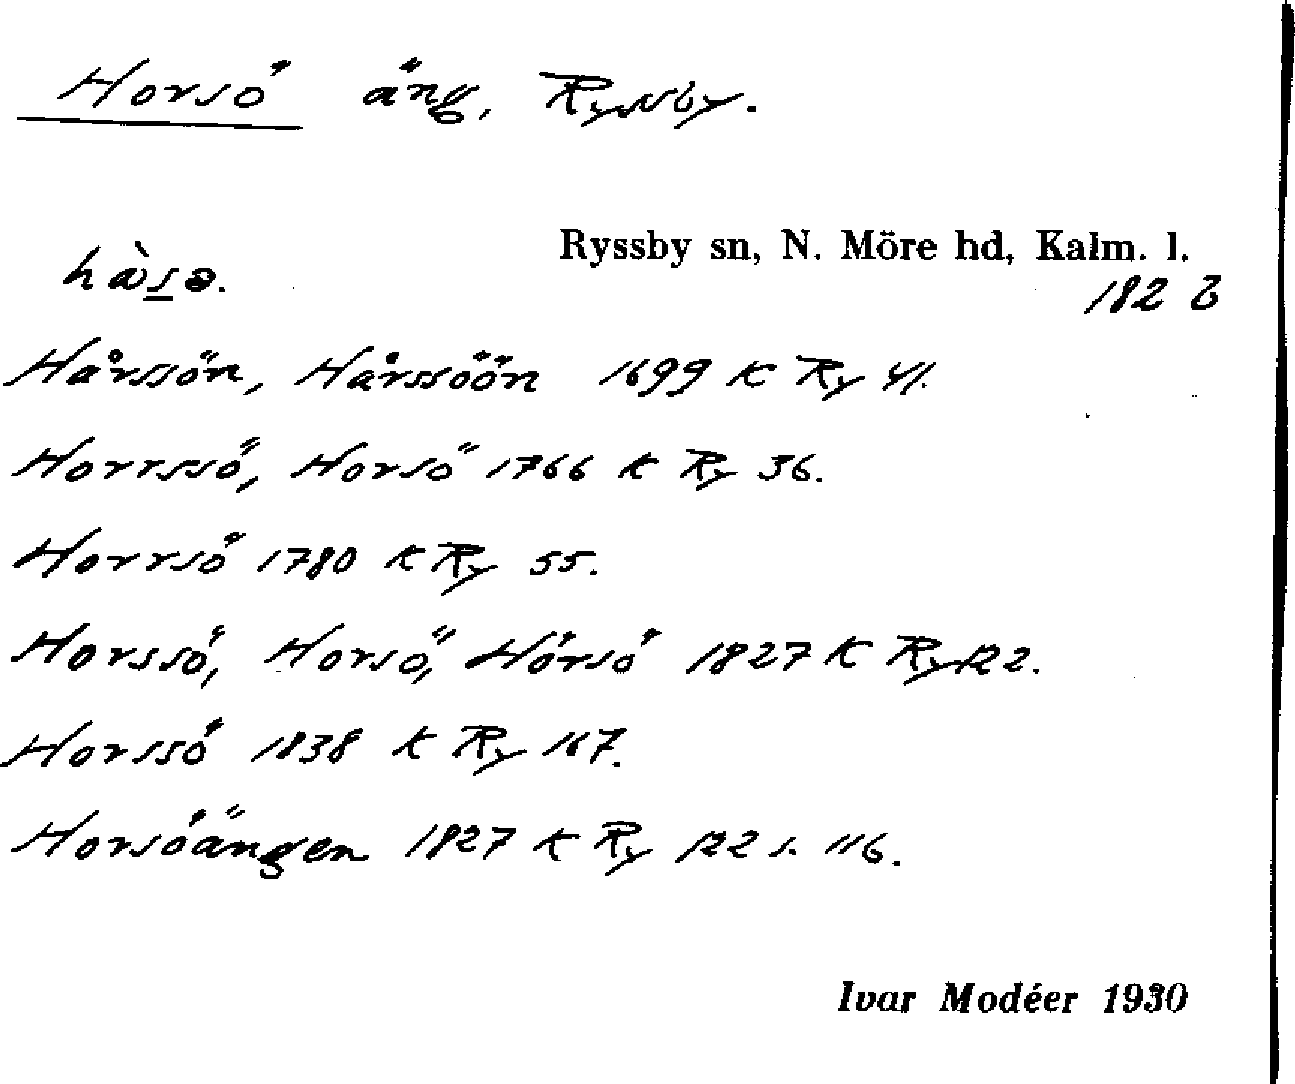 Horsö äng, Ryssby.
Ryssby sn, N. Möre hd, Kalm. l.
182 b
Hårssön, Hårssöön 1699 K Ry 41.
Horrssö, Horsö 1766 K Ry 36.
Horrsö 1780 K Ry 55.
Horssö, Horsö, Hörsö 1827 K Ry 122.
Horssö 1838 K Ry 167.
Horsöängen 1827 K Ry 122 s. 116.
Ivar Modéer 1930